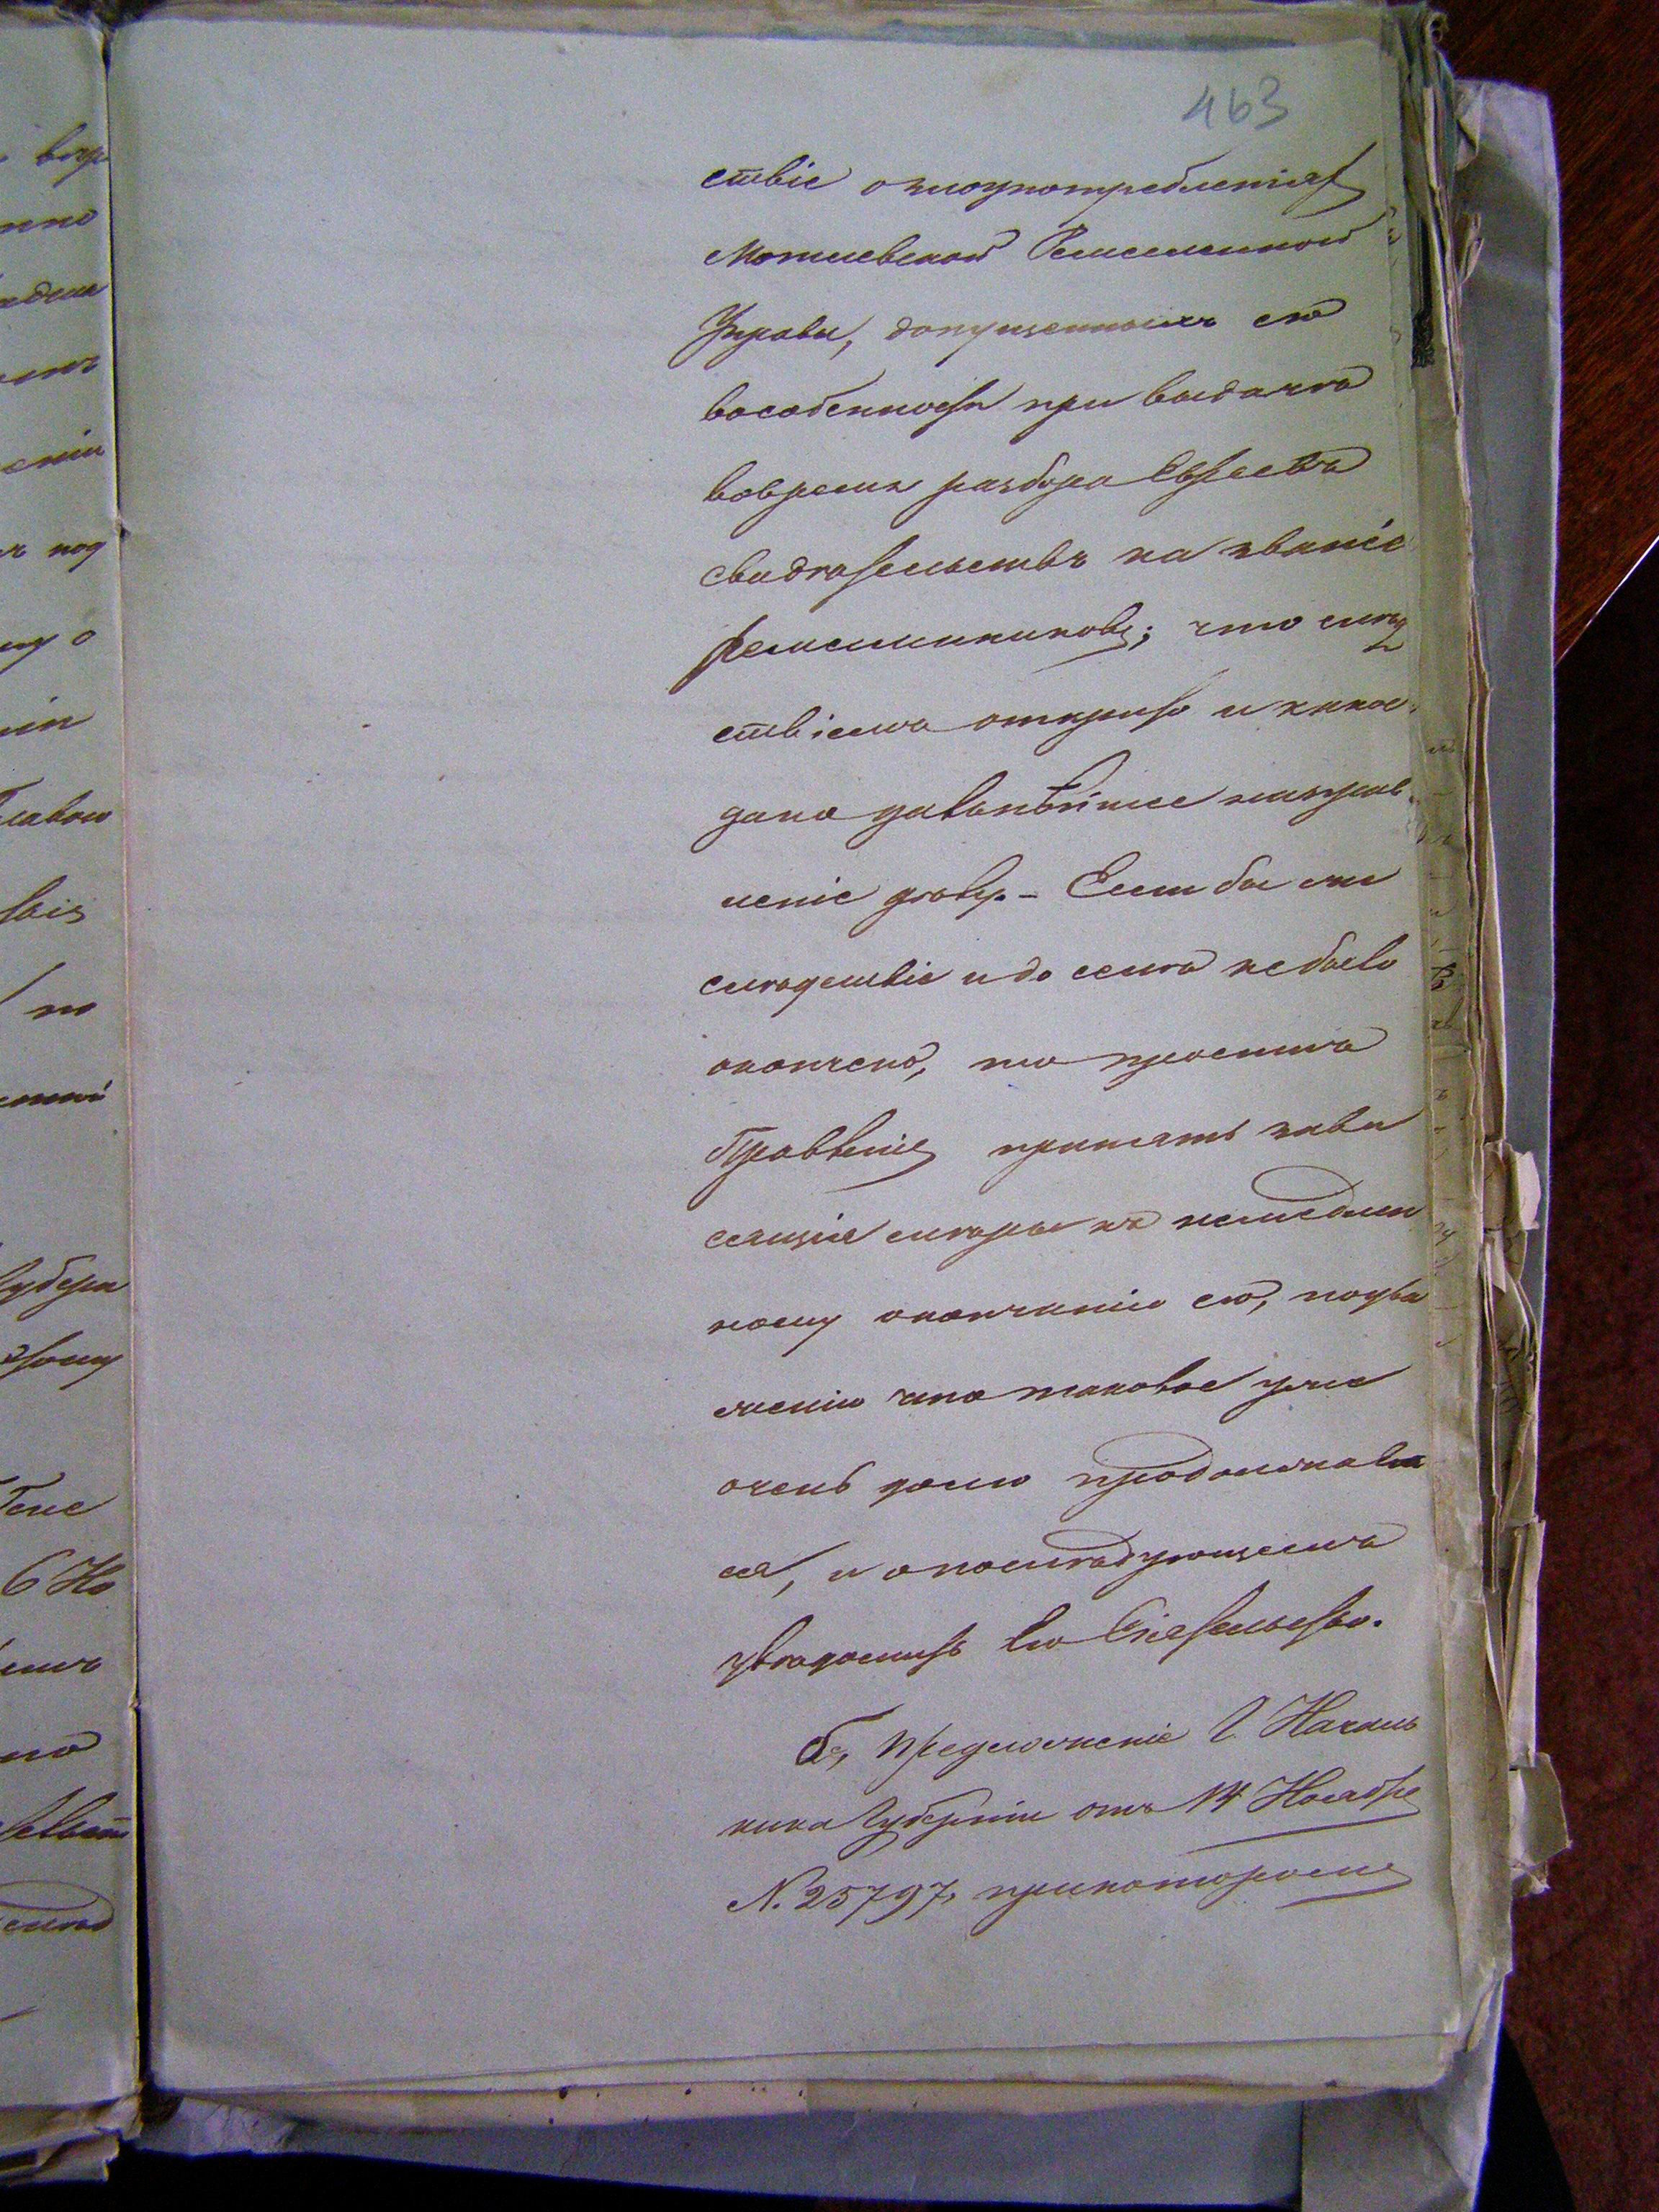 463
ствіе о злоупотребленіях
Могилевской Ремесленной
Управы, допущенныхъ ею
вособенности при выдачѣ
вовремя разбора Евреевъ
свидѣтельствъ на званіе
ремесленниковъ; что слѣд
ствіемъ открыто и какое
дано дальнѣйшее направ
леніе дѣлу. – Если бы же
слѣдствіе и до сего небыло
окончено, то проситъ
Правленіе принять зави
сящія мѣры къ немедлен
ному окончанію его, поува
женію что таковое уже
очень долго продолжает
ся, и о послѣдующемъ
увѣдомить Его Сіятельство.
б, предложеніе Г. Началь
ника Губерніи отъ 14 Ноября
N. 25797, прикоторомъ